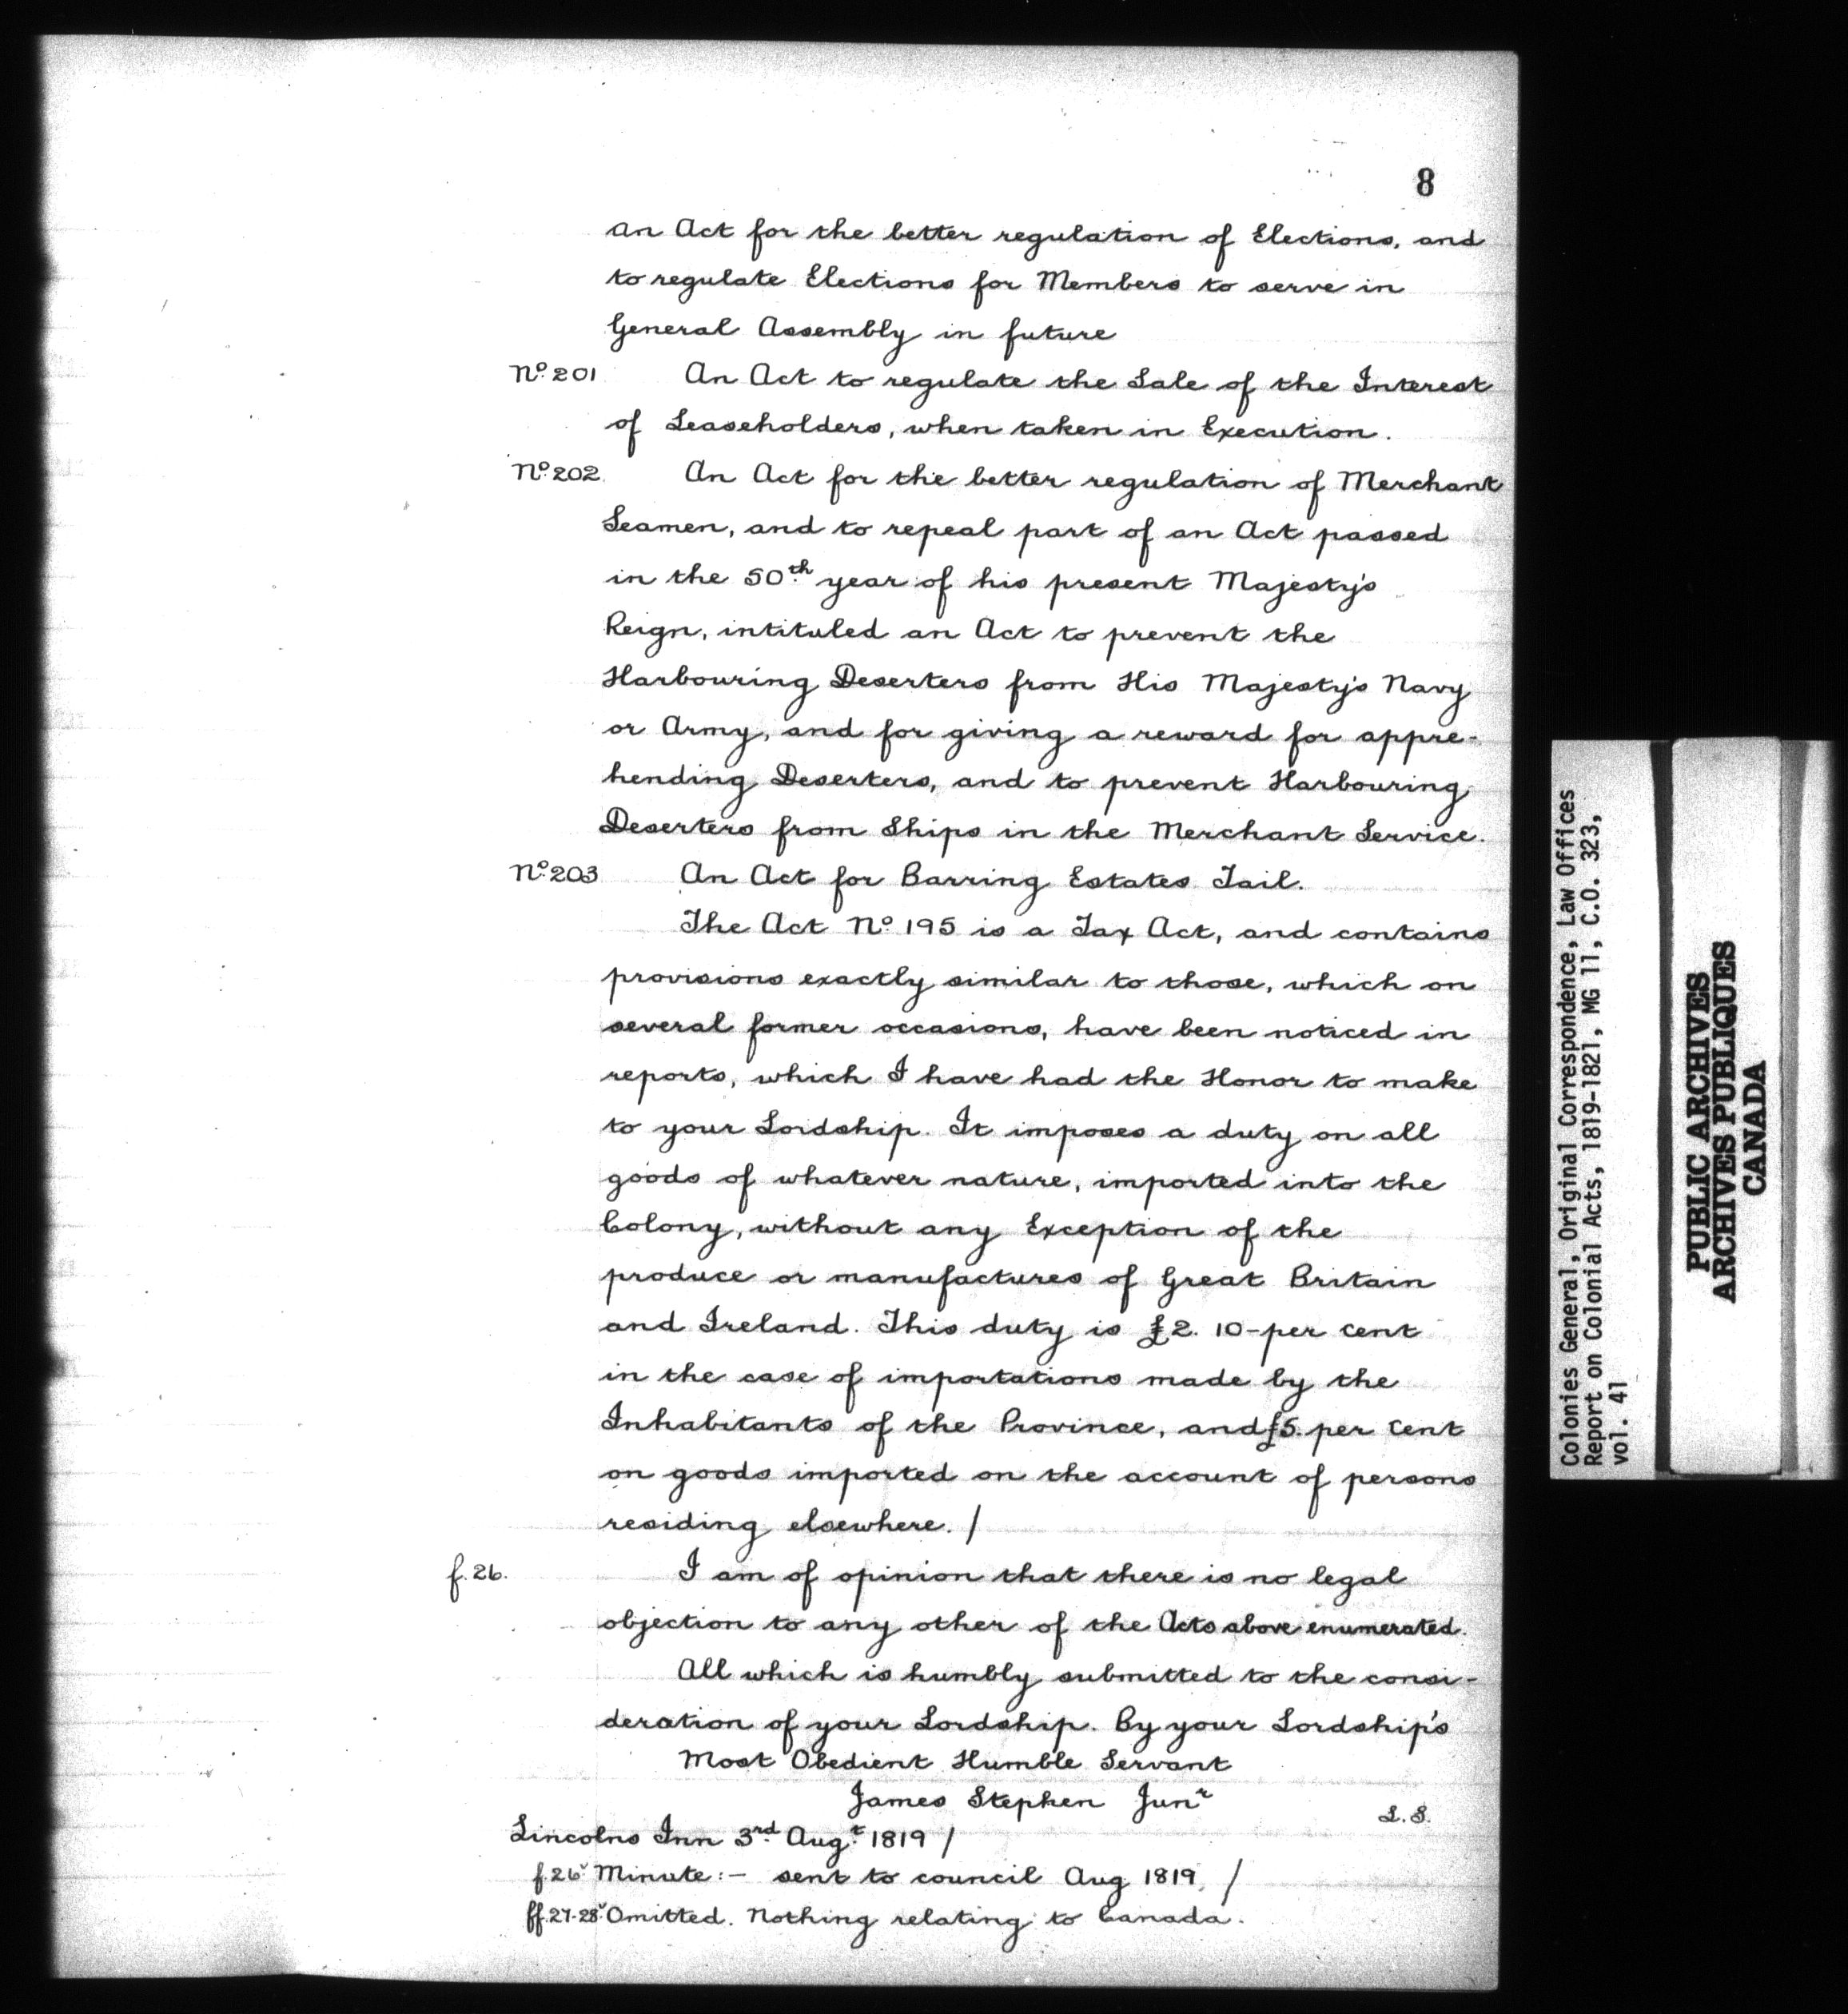 8
an Act for the better regulation of Elections, and
to regulate Elections for Members to serve in
General Assembly in future
No. 201 An Act to regulate the Sale of the Interest
of Leaseholders, when taken in Execution.
No. 202 An Act for the better regulation of Merchant
Seamen, and to repeal part of an Act passed
in the 50th year of his present Majesty's
Reign, intituled an Act to prevent the
Harbouring Deserters from His Majesty's Navy
or Army, and for giving a reward for appre-
hending Deserters, and to prevent Harbouring
Deserters from Ships in the Merchant Service.
No. 203 An Act for Barring Estates Tail.
The Act No 195 is a Tax Act, and contains
provisions exactly similar to those, which on
several former occasions, have been noticed in
reports, which I have had the Honor to make
to your Lordship. It imposes a duty on all
goods of whatever nature, imported into the
Colony, without any Exception of the
produce or manufactures of Great Britain
and Ireland. This duty is £2. 10-per cent
in the case of importations made by the
Inhabitants of the Province, and £5. per Cent
on goods imported on the account of persons
residing elsewhere. /
f. 26. I am of opinion that there is no legal
objection to any other of the Acts above enumerated.
All which is humbly submitted to the consi-
deration of your Lordship. By your Lordship's
Most Obedient Humble Servant
James Stephen Junr
L.S.
Lincolns Inn 3rd Augt 1819 /
f.26v Minute:- sent to council Aug 1819. /
ff.27-28v Omitted. Nothing relating to Canada.
Colonies General, Original Correspondence, Law Offices
Report on Colonial Acts, 1819-1821, MG 11, C.O. 323,
vol. 41
PUBLIC ARCHIVES
ARCHIVES PUBLIQUES
CANADA